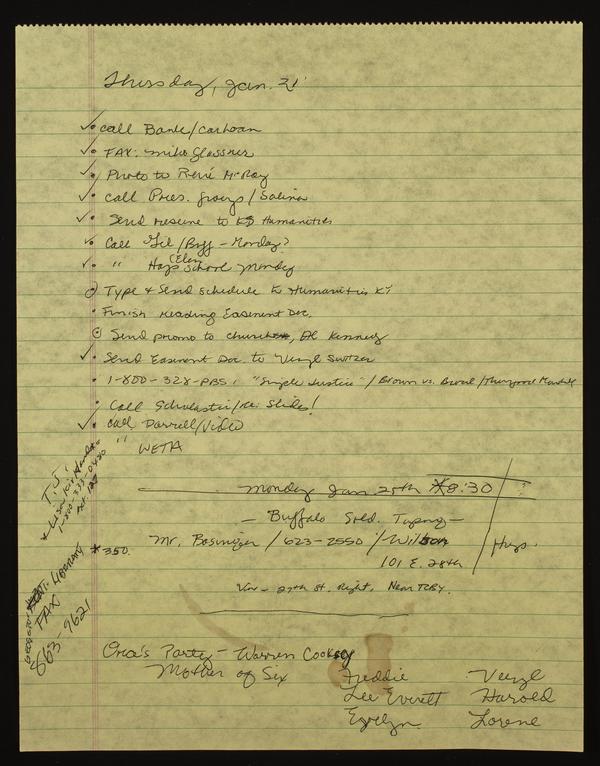 Thursday, Jan. 21
call Bank/
FAX: Mike Glassner
Photo to René McRay
call Pres. groups/Salina
Send resume to KS Humanities
Call Gil/Buff - Monday?
" Hays Elem School Monday
Type & Send schedule to Humanities KS
Finish reading Easement Doc.
Send promo to church, Kennedy
Send Easement Doc. to Veryl Switzer
1-800-328-PBS: "Simple Justice"/Brown vs. Board/Thurgood Marshall
Call Scholastic/re: Slides!
call Darrell/Video
" WETA
T.J.
* Lisa
1-800-333-0420
Monday Jan 25th *8:30
- Buffalo Sold. Taping -
*350.
Mr. Basinger/623-2550/Wilson
101 E. 28th
Hays.
Via - 27th St. Right, Near TCBY.
LIBRARY
FAX
563-9621
Ora's Party - Warren Cooksey
Mother of Six
Freddie Veryl
Lee Everett Harold
Evelyn Lorene